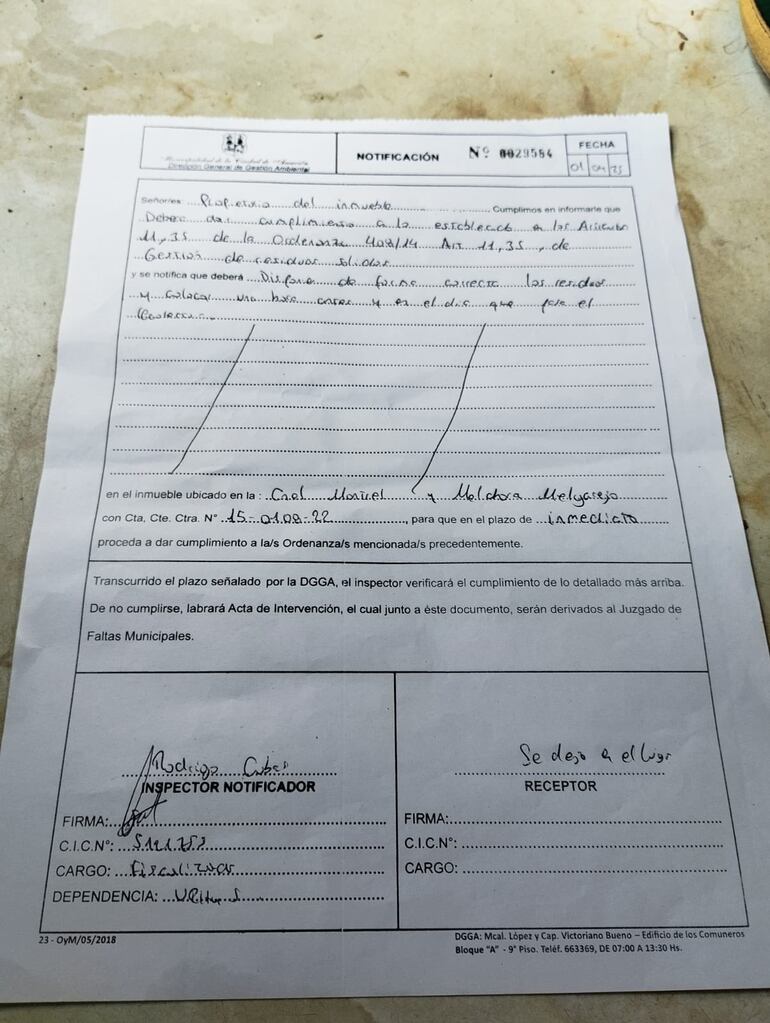 Municipalidad de la Ciudad de Asunción
Dirección General de Gestión Ambiental
NOTIFICACIÓN
Nº 0029584
FECHA
01 04 25
Señor/es: Propietario del inmueble Cumplimos en informarle que
Deberá dar cumplimiento a lo establecido en los Articulo
11,35 de la Ordenanza 408/14 Art 11,35, de
Gestion de residuos solidos
y se notifica que deberá Disponer de forma correcta los residuos
y colocar una hora antes y en el dia que pase el
en el inmueble ubicado en la: Cnel y Melchora Melgarejo
con Cta, Cte. Ctra. N° 15-0108-22, para que en el plazo de inmediato
proceda a dar cumplimiento a la/s Ordenanza/s mencionada/s precedentemente.
Transcurrido el plazo señalado por la DGGA, el inspector verificará el cumplimiento de lo detallado más arriba.
De no cumplirse, labrará Acta de Intervención, el cual junto a éste documento, serán derivados al Juzgado de
Faltas Municipales.
Rodrigo
INSPECTOR NOTIFICADOR
FIRMA:
C.I.C.N°:
CARGO: Fiscalizador
DEPENDENCIA:
Se dejo en el lugar
RECEPTOR
FIRMA:
C.I.C.N°:
CARGO:
23 - OyM/05/2018
DGGA: Mcal. López y Cap. Victoriano Bueno – Edificio de los Comuneros
Bloque "A" - 9° Piso. Teléf. 663369, DE 07:00 A 13:30 Hs.